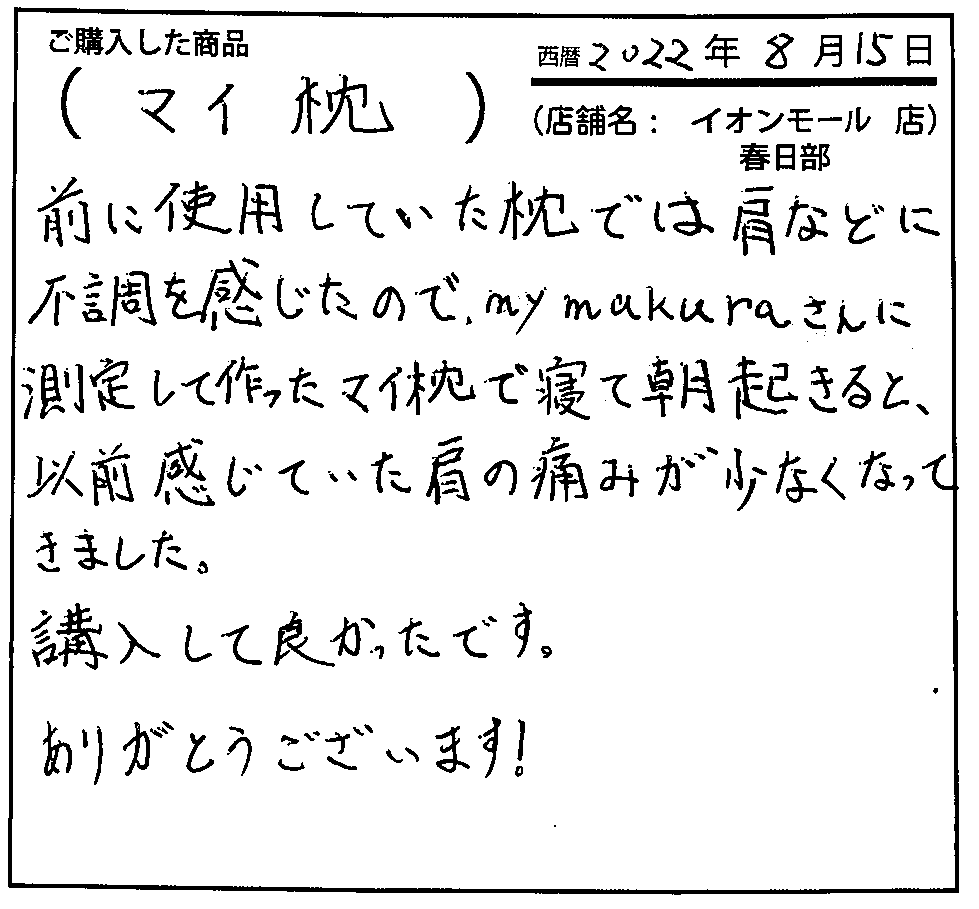 ご購入した商品
西暦 2022年 8月15日
(マイ枕)
(店舗名: イオンモール 店)
春日部
前に使用していた枕では肩などに
不調を感じたので、my makuraさんに
測定して作ったマイ枕で寝て朝起きると、
以前感じていた肩の痛みが少なくなって
きました。
講入して良かったです。
ありがとうございます!